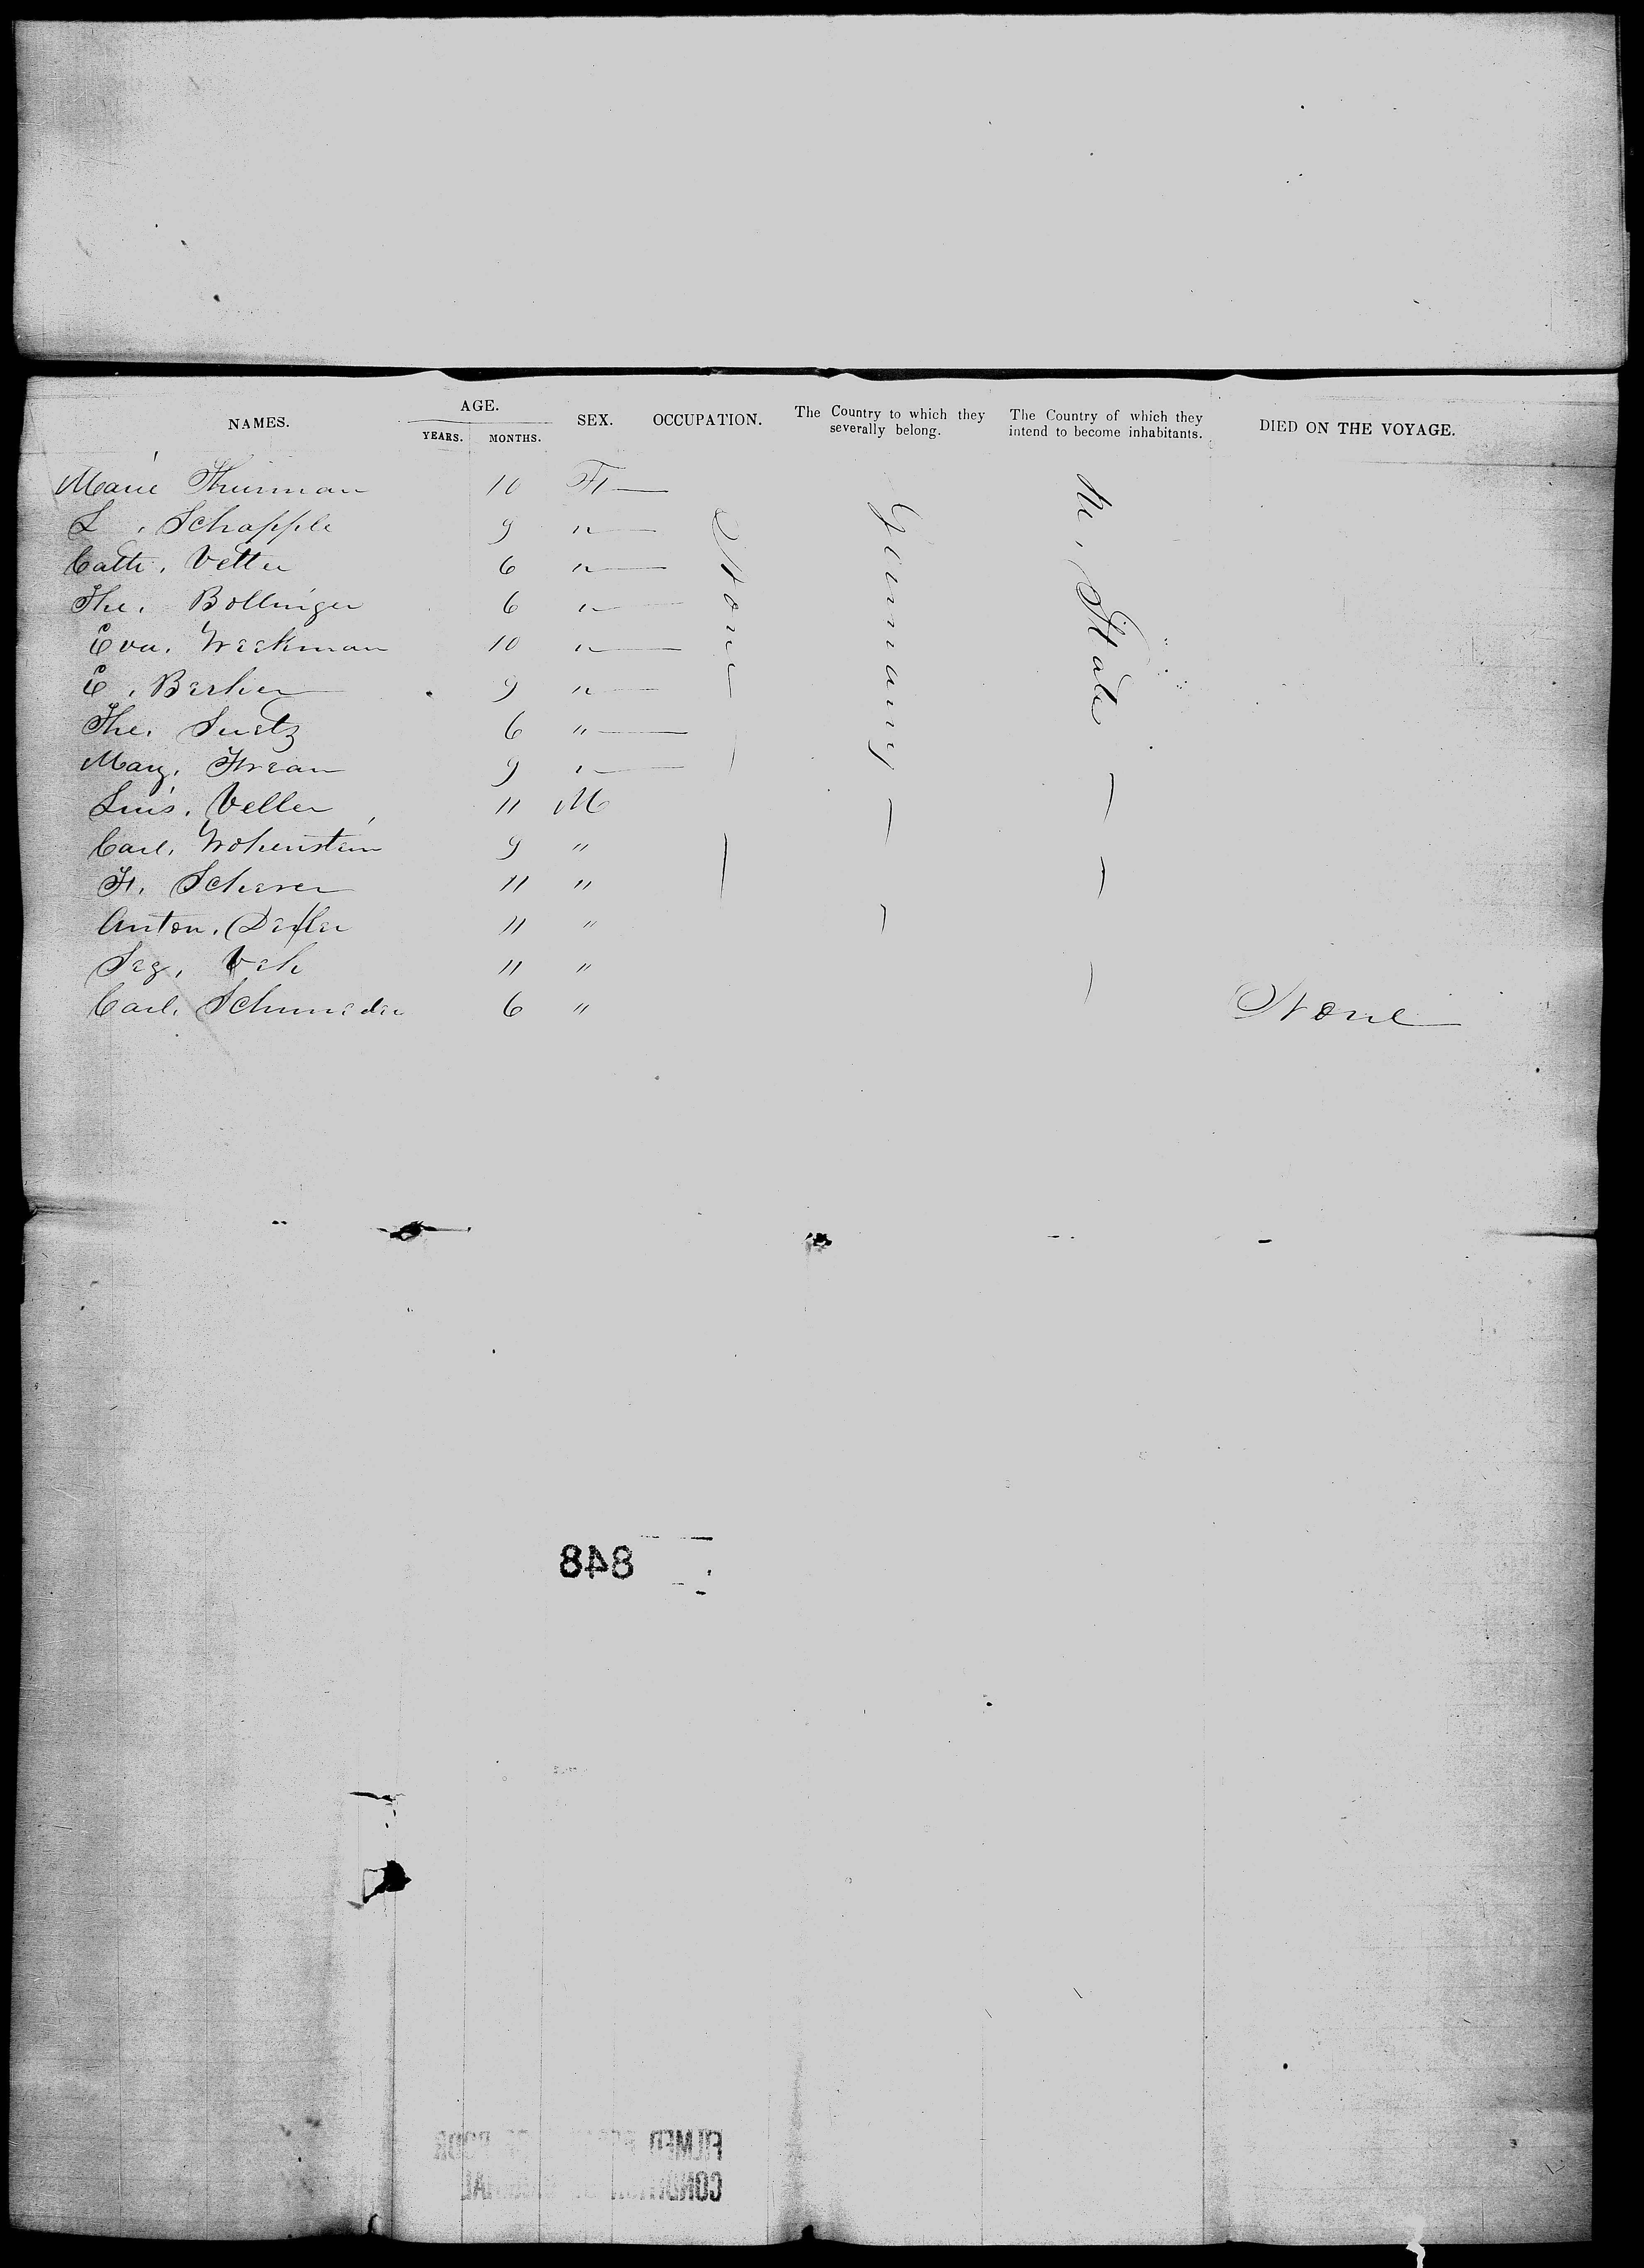 NAMES. AGE. SEX. OCCUPATION. The Country to which they severally belong. The Country of which they intend to become inhabitants. DIED ON THE VOYAGE.
YEARS. MONTHS.
Marie Thurman 10 F
L, Schapple 9 "
Cath, Vetter 6 "
The, Bollinger 6 "
Eva, Weekman 10 "
E, 9 "
The, 6 "
9 "
Veller 11 M
Carl, Wohenstein 9 "
Fr, Scherer 11 "
Anton, 11 "
11 "
Carl, 6 "
None
Germany
State
None
848
FILMED POOR
CONDITION